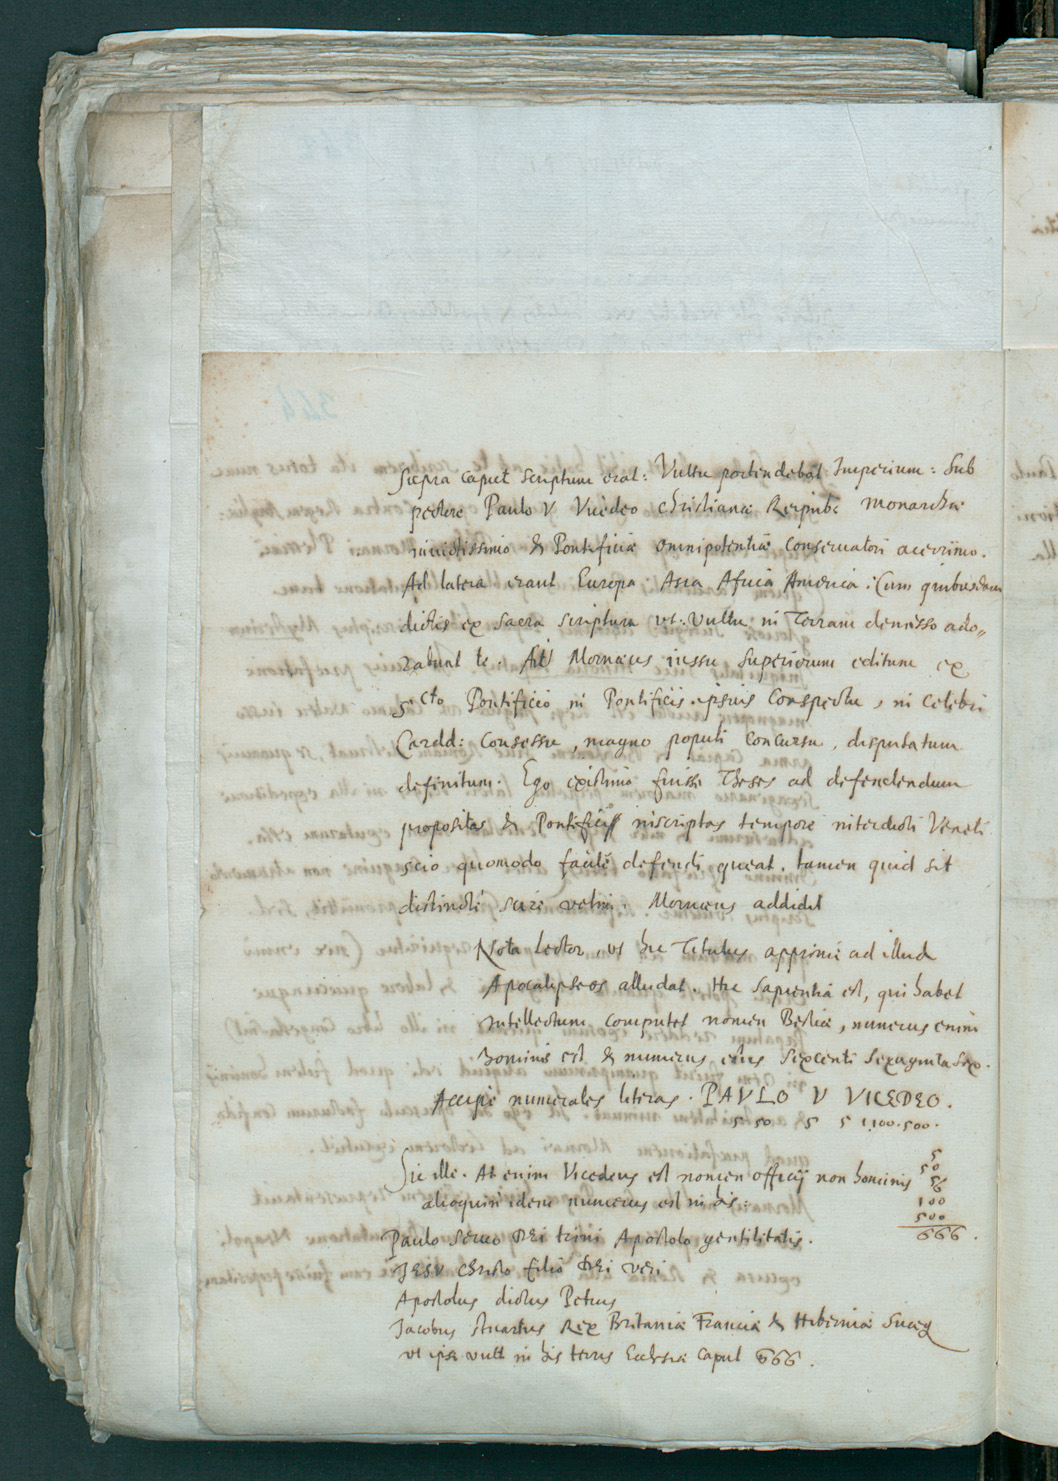 Supra caput scriptum erat: Vultu portendebat Imperium: Sub
pectore Paulo V Vicedeo christianæ Reipubᶜ Monarchæ
invictissimo & Pontificiæ omnipotentiæ conservatori acerrimo.
Ad latera erant Europa Asia Africa America: Cum quibusdam
dictis ex sacra scriptura ut: Vultu in Terram demisso ado„
rabunt te. Ait Mornæus iussu superiorum editum ex
Pontificio in Pontificis ipsius conspectu, in celebri
Cardd: Consessu, magno populi concursu, disputatum
definitum. Ego existimo fuisse Theses ad defendendum
propositas & Pontifici inscriptas tempore interdicti Veneti
scio quomodo facile defendi queat. tamen quid sit
distincte scire velim. Mornæus addidit
Nota Lector, ut hic Titulus apprime ad illud
Apocalipseos alludat. Hic sapientia est, qui habet
intellectum computet nomen Bestiæ, numerus enim
hominis est & numerus eius sexcenti sexaginta sex.
Accipe numerales literas. PAVLO V VICEDEO.
5 50 5 5 1.100.500.
Sic ille. At enim Vicedeus est nomen officij non hominis
alioquin idem numerus est in his:
5
50
56
100
500
666.
Paulo servo DEi trini Apostolo gentilitatis.
JESV Christo filio DEi vEi
Apostolus dictus Petrus
Jacobus Stuartus Rex Britaniæ Franciæ & Hiberniæ
ut ipse vult in his terris Ecclesiæ caput 666.